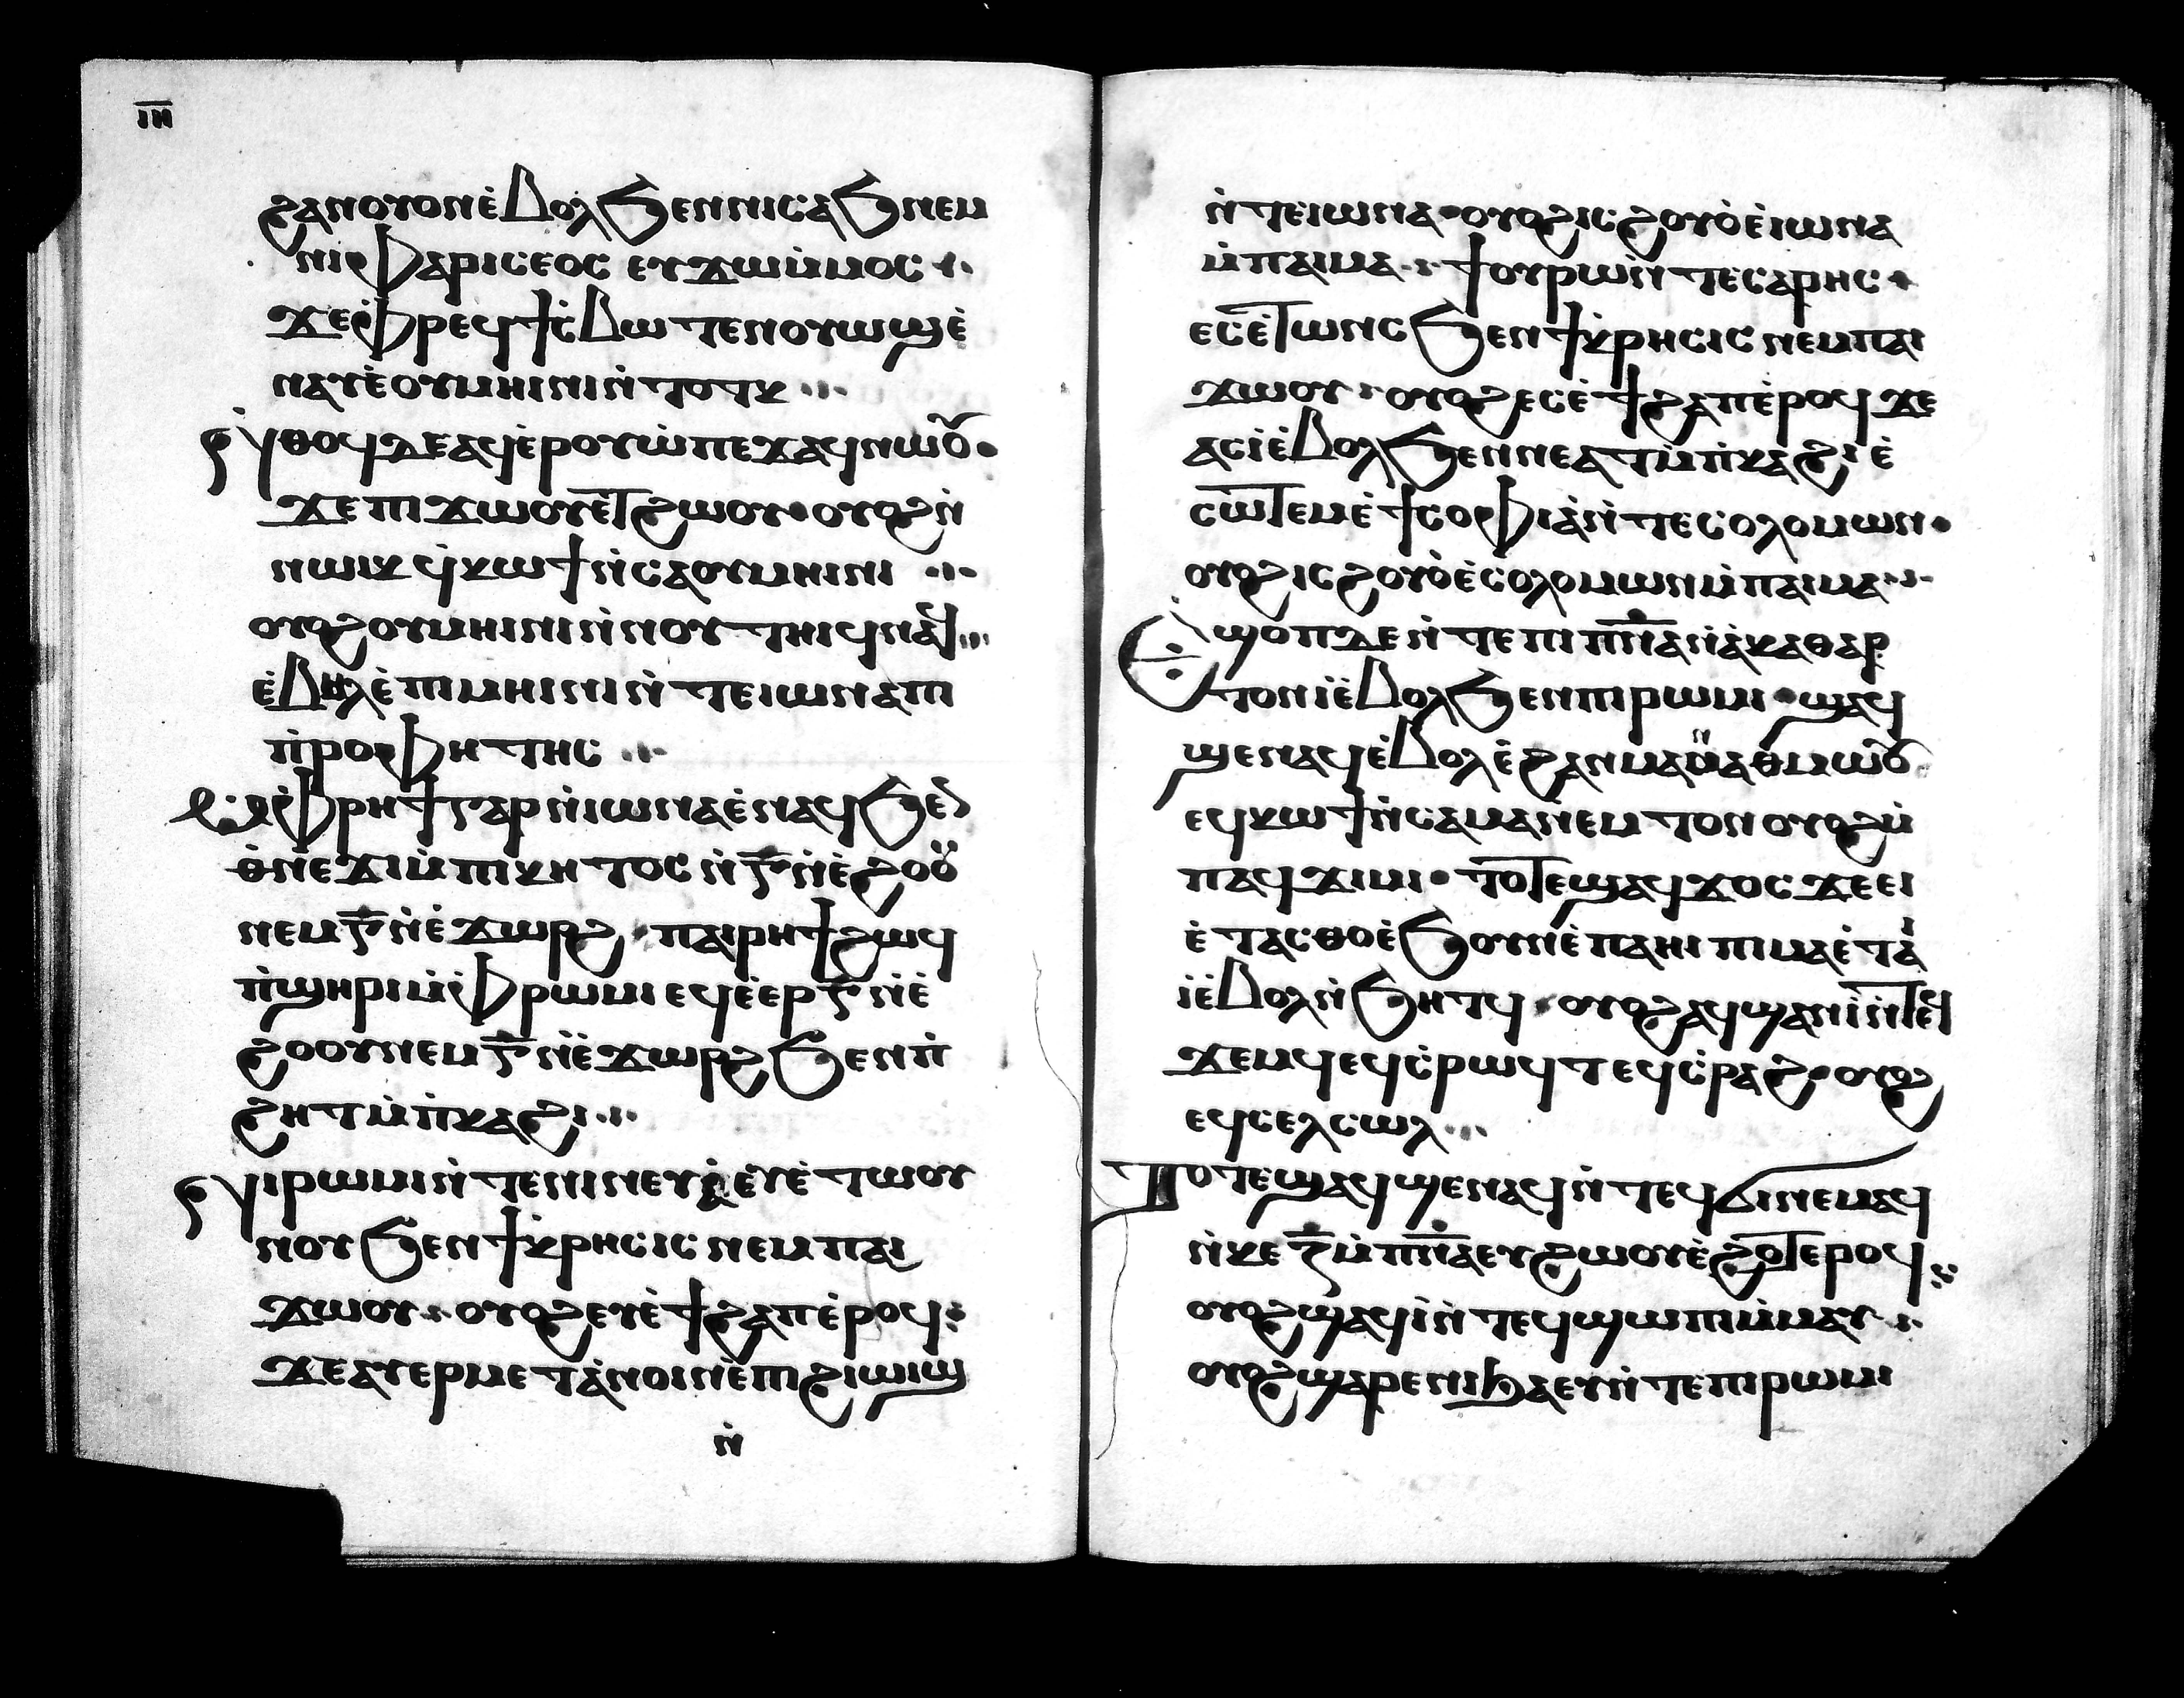 ⲓⲏ
ϩⲁⲛⲟⲩⲟⲛⲉ̀ⲃⲟⲗϧⲉⲛⲛⲓⲥⲁϧⲛⲉⲙ
ⲛⲓⲫⲁⲣⲓⲥⲉⲟⲥ ⲉⲩϫⲱⲙ̀ⲙⲟⲥ
ϫⲉⲫ̀ⲣⲉϥϯⲥ̀ⲃⲱ ⲧⲉⲛⲟⲩⲱϣⲉ̀
ⲛⲁⲩⲉ̀ⲟⲩⲙⲏⲓⲛⲓⲛ̀ⲧⲟⲧⲕ
ⲛ̀ⲑⲟϥⲇⲉⲁϥⲉ̀ⲣⲟⲩⲱ̀ⲡⲉϫⲁϥⲛⲱⲟⲩ
ϫⲉⲡⲓϫⲱⲟⲩⲉ̀ⲧϩⲱⲟⲩ·ⲟⲩⲟϩⲛ̀
ⲛⲱⲓⲕ ϥ̀ⲕⲱϯⲛ̀ⲥⲁⲟⲩⲙⲏⲓⲛⲓ
ⲟⲩⲟϩⲟⲩⲙⲏⲓⲛⲓⲛ̀ⲛⲟⲩⲧⲏⲓϥⲛⲁϥ
ⲉ̀ⲃⲏⲗⲉ̀ⲡⲓⲙⲏⲓⲛⲓⲛ̀ⲧⲉⲓⲱⲛⲁⲡⲓ
ⲡ̀ⲣⲟⲫⲏⲧⲏⲥ
ⲙ̀ⲫⲣⲏϯⲅⲁⲣⲛ̀ⲓⲱⲛⲁⲉ̀ⲛⲁϥϧⲉⲛ
ⲑ̀ⲛⲉϫⲓⲙ̀ⲡⲓⲕⲏⲧⲟⲥ ⲛ̀ⲅ̅ⲛ̀ⲉ̀ϩⲟⲟⲩ
ⲛⲉⲙⲅ̅ⲛ̀ⲉ̀ϫⲱⲣϩ·ⲡⲁⲓⲣⲏϯϩⲱϥ
ⲡ̀ϣⲏⲣⲓⲙ̀ⲫ̀ⲣⲱⲙⲓ ⲉϥⲉ̀ⲉⲣⲅ̅ⲛ̀ⲉ̀
ϩⲟⲟⲩⲛⲉⲙⲅ̅ⲛ̀ⲉ̀ϫⲱⲣϩϧⲉⲛⲡ̀
ϩⲏⲧⲙ̀ⲡ̀ⲕⲁϩⲓ
ⲛⲓⲣⲱⲙⲓⲛ̀ⲧⲉⲛⲓⲛⲉⲩⲏ̀ⲉⲩⲉ̀ⲧⲱⲟⲩ
ⲛⲟⲩϧⲉⲛϯⲕⲣⲏⲥⲓⲥ ⲛⲉⲙⲡⲁⲓ
ϫⲱⲟⲩ·ⲟⲩⲟϩⲉⲩⲉ̀ϯϩⲁⲡⲉ̀ⲣⲟϥ
ϫⲉⲁⲩⲉⲣⲙⲉⲧⲁ̀ⲛⲟⲓⲛⲉ̀ⲡⲓϩⲓⲱⲓϣ
ⲛ̀
ⲛ̀ⲧⲉⲓⲱⲛⲁ·ⲟⲩⲟϩⲓⲥϩⲟⲩⲟ̀ⲉ̀ⲓⲱⲛⲁ
ⲙ̀ⲡⲁⲓⲙⲁ·ϯⲟⲩⲣⲱⲛ̀ⲧⲉⲥⲁⲣⲏⲥ
ⲉⲥⲉ̀ⲧⲱⲛⲥϧⲉⲛϯⲕⲣⲏⲥⲓⲥ ⲛⲉⲙⲡⲁⲓ
ϫⲱⲟⲩ·ⲟⲩⲟϩⲉⲥⲉ̀ϯϩⲁⲡⲉ̀ⲣⲟϥ ϫⲉ
ⲁⲥⲓ̀ⲉ̀ⲃⲟⲗϧⲉⲛⲛⲉⲁⲧⲙ̀ⲡ̀ⲕⲁϩⲓ ⲉ̀
ⲥⲱ̀ⲧⲉⲙⲉ̀ϯⲥⲟⲫⲓⲁ̀ⲛ̀ⲧⲉⲥⲟⲗⲟⲙⲱⲛ·
ⲟⲩⲟϩⲓⲥϩⲟⲩⲟ̀ⲉ̀ⲥⲟⲗⲟⲙⲱⲛⲙ̀ⲡⲁⲓⲙⲁ
ⲉϣⲱⲡⲇⲉⲛ̀ⲧⲉⲡⲓⲡⲛ̅ⲁⲛ̀ⲁ̀ⲕⲁⲑⲁⲣ
ⲧⲟⲛⲓ̀ⲉ̀ⲃⲟⲗϧⲉⲛⲡⲓⲣⲱⲙⲓ·ϣⲁϥ
ϣⲉⲛⲁϥⲉ̀ⲃⲟⲗⲉ̀ϩⲁⲛⲙⲁⲛ̀ⲁⲑⲙⲱⲟⲩ
ⲉϥⲕⲱϯⲛ̀ⲥⲁⲙⲁⲛ̀ⲉⲙⲧⲟⲛ ⲟⲩⲟϩⲙ̀
ⲡⲁϥϫⲓⲙⲓ·ⲧⲟⲧⲉϣⲁϥϫⲟⲥ ϫⲉⲉⲓ
ⲉ̀ⲧⲁⲥⲑⲟⲉ̀ϧⲟⲩⲛⲉ̀ⲡⲁⲏⲓ ⲡⲓⲙⲁⲉ̀ⲧⲁⲓ
ⲓ̀ⲉ̀ⲃⲟⲗⲛ̀ϧⲏⲧϥ·ⲟⲩⲟϩⲁϥϣⲁⲛⲓ̀ⲛ̀ⲧⲉϥ
ϫⲉⲙϥⲉϥⲥ̀ⲣⲱϥⲧ ⲉϥⲥ̀ⲣⲁϩ·ⲟⲩⲟϩ
ⲉϥⲥⲉⲗⲥⲱⲗ
ⲧⲟⲧⲉϣⲁϥϣⲉⲛⲁϥⲛ̀ⲧⲉϥϭⲓⲛⲉⲙⲁϥ
ⲛ̀ⲕⲉⲍ̅ⲙ̀ⲡⲛ̅ⲁⲉⲩϩⲱⲟⲩⲉ̀ϩⲟⲧⲉⲣⲟϥ
ⲟⲩⲟϩϣⲁϥⲓ̀ⲛ̀ⲧⲉϥϣⲱⲡⲓⲙ̀ⲙⲁⲩ
ⲟⲩⲟϩϣⲁⲣⲉⲛⲓϧⲁⲉⲩⲛ̀ⲧⲉⲡⲓⲣⲱⲙⲓ